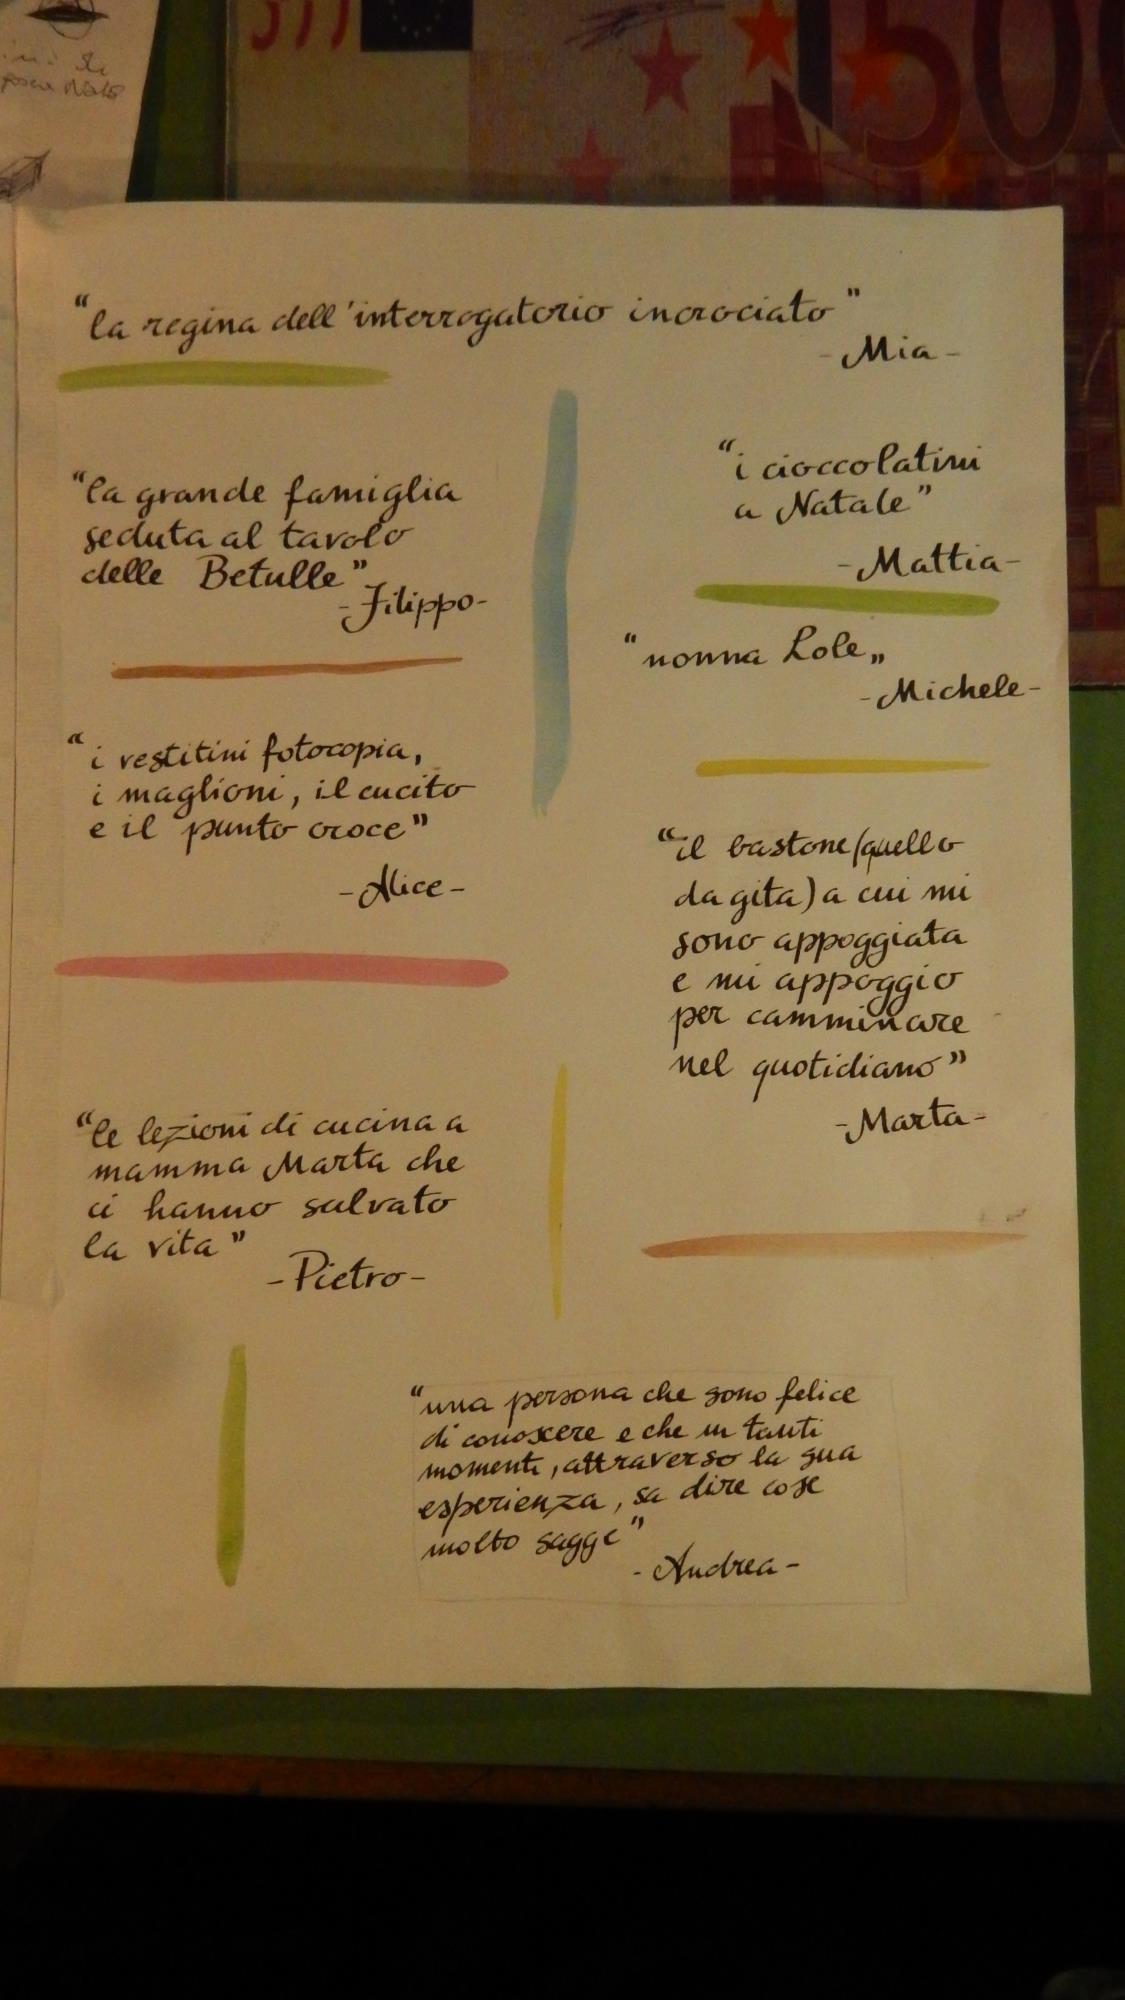 "la regina dell'interrogatorio incrociato"
-Mia-
"la grande famiglia
seduta al tavolo
delle Betulle"
-Filippo-
"i cioccolatini
a Natale"
-Mattia-
"nonna Lole„
-Michele-
"i vestitini fotocopia,
i maglioni, il cucito
e il punto croce"
-Alice-
"il bastone (quello
da gita) a cui mi
sono appoggiata
e mi appoggio
per camminare
nel quotidiano"
-Marta-
"le lezioni di cucina a
mamma Marta che
ci hanno salvato
la vita"
-Pietro-
"una persona che sono felice
di conoscere e che in tanti
momenti, attraverso la sua
esperienza, sa dire cose
molto sagge"
-Andrea-